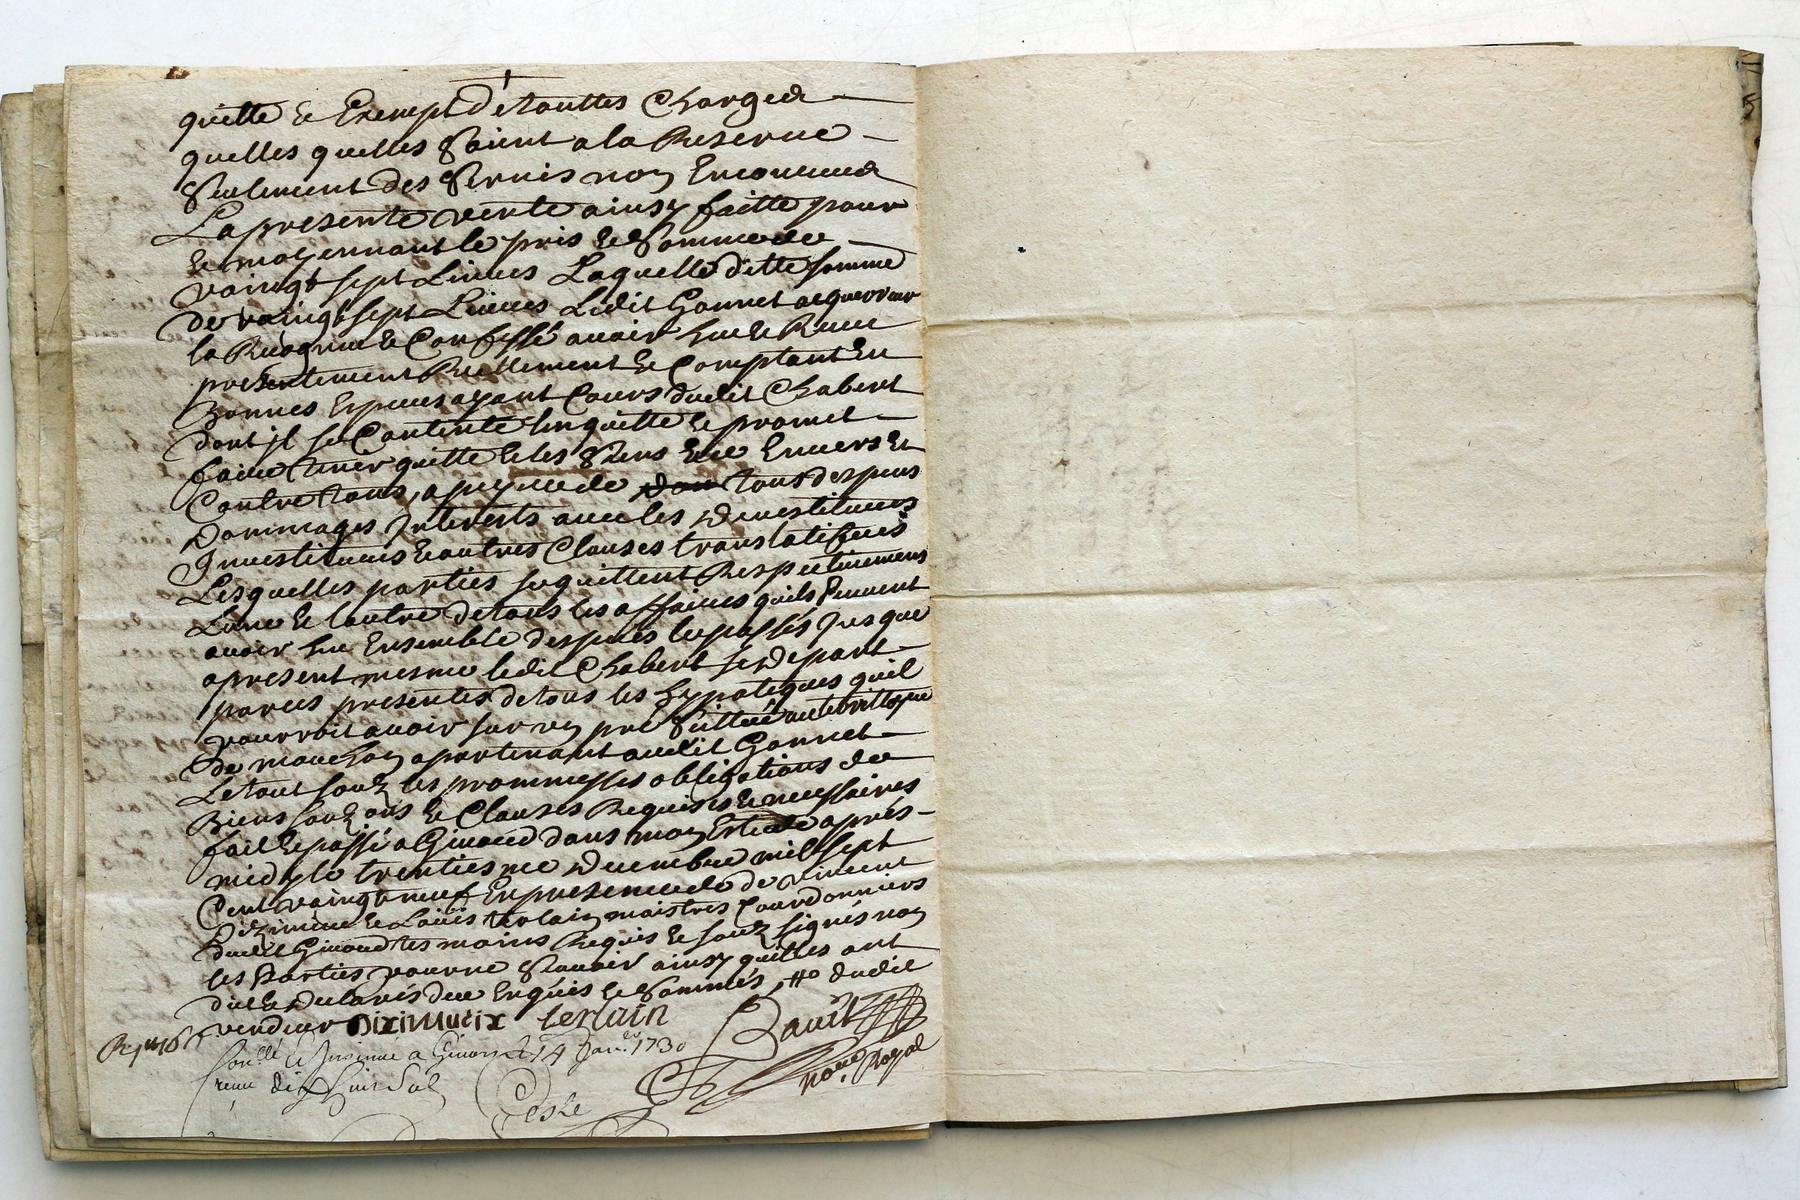 quitte & Exempt de touttes Charges
quelles quelles Soient a la Reserve
Seulement des Servis non Encourus
La presente vente ainsy faitte pour
& moyennant le pris & Somme de
vaingt sept Livres Laquelle ditte somme
de vaingt sept Livres Ledit Gonnet acquereur
la Recognu & Confessé avoir heu & Receu
presentement Reellement & Comptant En
Bonnes Especes ayant Cours dudit Chabert
dont jl se Contente lenquitte & promet
faire tenir quitte & les Siens Envers &
Contre tous, a peyne de tous despens
Dommages Jnterests avec les Devestitures
Jnvestitures & autres Clauses translatifves
Lesquelles parties se quittent Respectivement
Lune & lautre de tous les affaires quils peuvent
avoir heu Ensemble despuis le passés Jusque
apresent mesme ledit Chabert se depart
par ces presentes de tous les hypoteques quil
pourroit avoir sur un pré Scittué
de mouchon apartenant audit Gonnet
Le tout soubz les prommesses obligations de
Biens soubzons & Clauses Requises & necessaires
fait & passé a Ginaud dans mon Estude apres
midy le trentiesme Decembre mil sept
Cent vaingt neuf En presence de vincent
Diziminie & Loüis terlain maistres Courdonniers
dudit Ginaud tesmoins Requis & soubz signés non
les Parties pour ne Scavoir ainsy quelles ont
dit & Declarés de ce Enquis & Sommés, dudit
vendeur terlain
Bauit
no.re Royal
Con.llé & Jnsinué a 14 Janv.r 1730
receu dix huit Sols